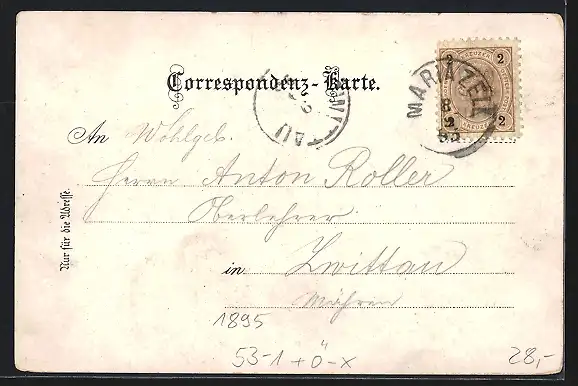 Correspondenz-Karte.
2 2
KREUZER
2 2
MARIAZELL
8
95
AU
An Wohlgeb.
Herrn Anton Roller
Oberlehrer
in Zwittau
Mähren
Nur für die Adresse.
1895
53-1 + Ö-x
28,-